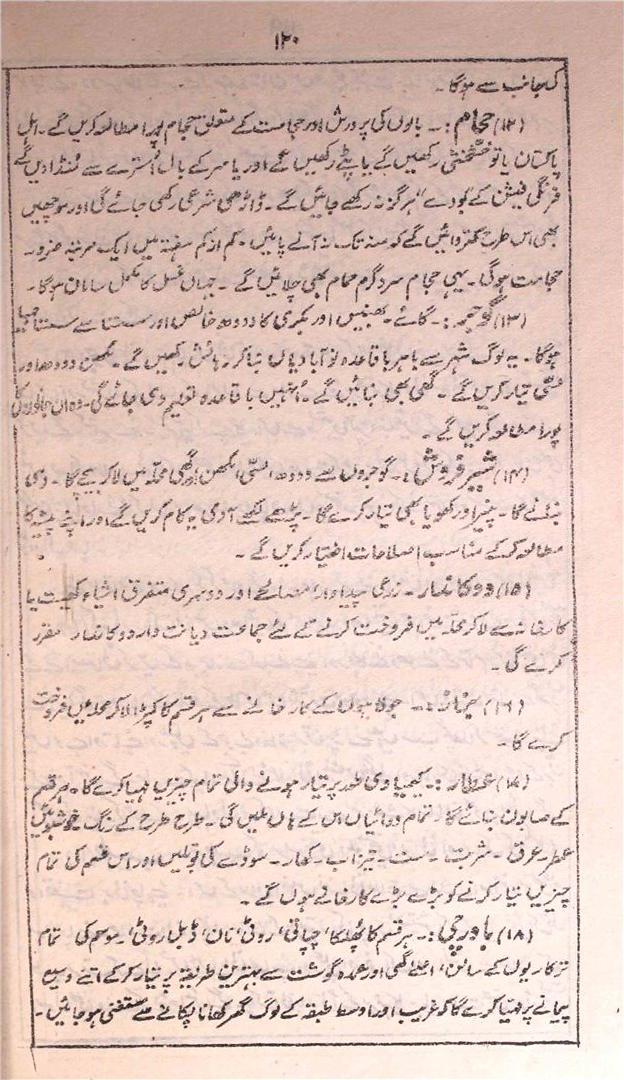 ۱۲۰
کی جانب سے ہوگا۔
(۱۲) حجام :۔ بالوں کی پرورش اور حجامت کے متعلق حجام پورا مطالعہ کریں گے۔ اہل
پاکستان یا تو خشخشی رکھیں گے یا پٹے رکھیں گے اور یا سر کے بال اُسترے سے منڈا دیں گے
فرنگی فیشن کے "بودے" ہرگز نہ رکھے جائیں گے۔ ڈاڑھی شرعی رکھی جائے گی اور موچھیں
بھی اس طرح کتروائیں گے کہ منہ تک نہ آنے پائیں۔ کم از کم ہفتہ میں ایک مرتبہ ضرور
حجامت ہوگی۔ یہی حجام سرد گرم حمام بھی چلائیں گے۔ جہاں غسل کا مکمل سامان ہوگا۔
(۱۳) گوجر :۔ گائے۔ بھینس اور بکری کا دودھ خالص اور سستا سے سستا مہیا
ہوگا۔ یہ لوگ شہر سے باہر باقاعدہ نو آبادیاں بنا کر رہائش رکھیں گے۔ مکھن دودھ اور
لسّی تیار کریں گے۔ گھی بھی بنائیں گے۔ اُنہیں باقاعدہ تعلیم دی جائے گی۔ وہ ان جانوروں کا
پورا مطالعہ کریں گے۔
(۱۴) شیر فروش :۔ گوجروں سے دودھ لسّی مکھن اور گھی محلہ میں لاکر بیچے گا۔ دہی
بنائے گا۔ پنیر اور کھویا بھی تیار کرے گا۔ پڑھے لکھے آدمی یہ کام کریں گے اور اپنے پیشہ کا
مطالعہ کر کے مناسب اصلاحات اختیار کریں گے۔
(۱۵) دوکاندار ۔ زرعی پیداوار مصالحے اور دوسری متفرق اشیاء کھیت یا
کارخانہ سے لاکر محلہ میں فروخت کرنے کے لئے جماعت دیانت دار دوکاندار مقرر
کرے گی۔
(۱۶) بزاز :۔ جولاہوں کے کارخانے سے ہر قسم کا کپڑا لاکر محلہ میں فروخت
کرے گا۔
(۱۷) عطار :۔ کیمیاوی طور پر تیار ہونے والی تمام چیزیں مہیا کرے گا۔ ہر قسم
کے صابون بنائے گا۔ تمام دوائیاں اس کے ہاں ملیں گی۔ طرح طرح کے رنگ۔ خوشبوئیں
عطر۔ عرق۔ شربت۔ ست۔ تیزاب۔ کھار۔ سوڈے کی بوتلیں اور اس قسم کی تمام
چیزیں تیار کرنے کو بڑے بڑے کارخانے ہوں گے۔
(۱۸) باورچی :۔ ہر قسم کا پھلکا، چپاتی، روٹی، نان، ڈبل روٹی۔ موسم کی تمام
ترکاریوں کے سالن، اعلےٰ گھی اور عمدہ گوشت سے بہترین طریقہ پر تیار کر کے اتنے وسیع
پیمانے پر مہیا کرے گا کہ غریب اور اوسط طبقہ کے لوگ گھر کھانا پکانے سے مستغنی ہو جائیں۔